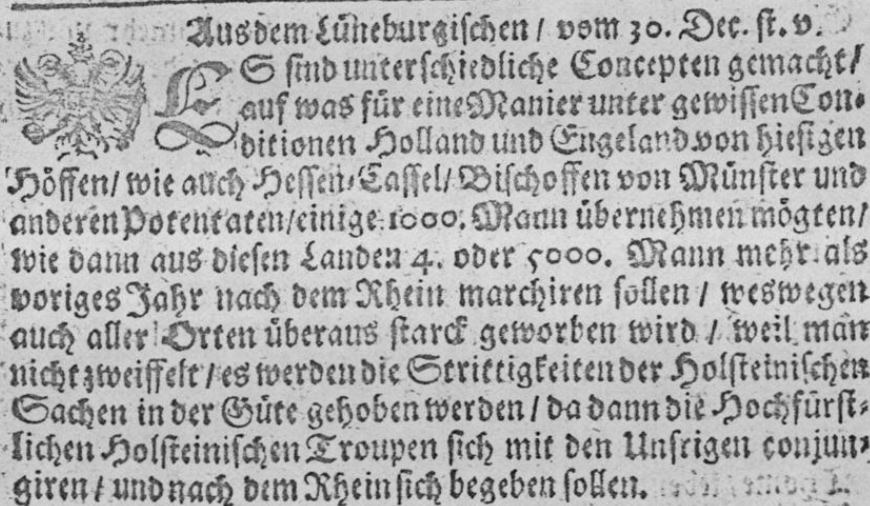 Aus dem Lüneburgischen / vom 30. Dec. st. v.
ES sind unterschiedliche Concepten gemacht /
auf was für eine Manier unter gewissen Con-
ditionen Holland und Engeland von hiesigen
Höffen / wie auch Hessen-Cassel / Bischoffen von Münster und
anderen Potentaten / einige 1000. Mann übernehmen mögten /
wie dann aus diesen Landen 4. oder 5000. Mann mehr als
voriges Jahr nach dem Rhein marchiren sollen / weswegen
auch aller Orten überaus starck geworben wird / weil man
nicht zweiffelt / es werden die Strittigkeiten der Holsteinischen
Sachen in der Güte gehoben werden / da dann die Hochfürst-
lichen Holsteinischen Troupen sich mit den Unsrigen conjun-
giren / und nach dem Rhein sich begeben sollen.